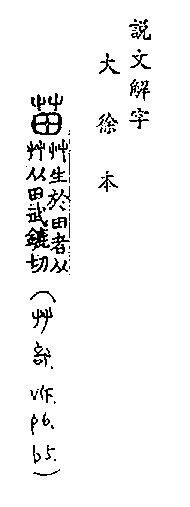 説文解字
大徐本
苗
艸生於田者从
艸从田武鑣切
(艸部. V下. p6. b5.)